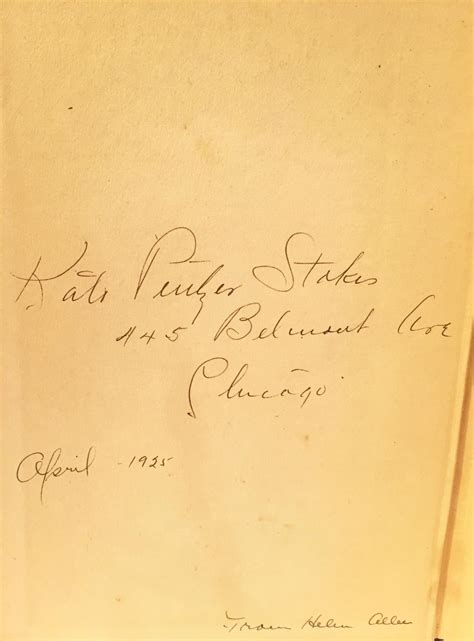 Kate Pentzer Stokes
445 Belmont Ave
Chicago
April - 1925
From Helen Allen